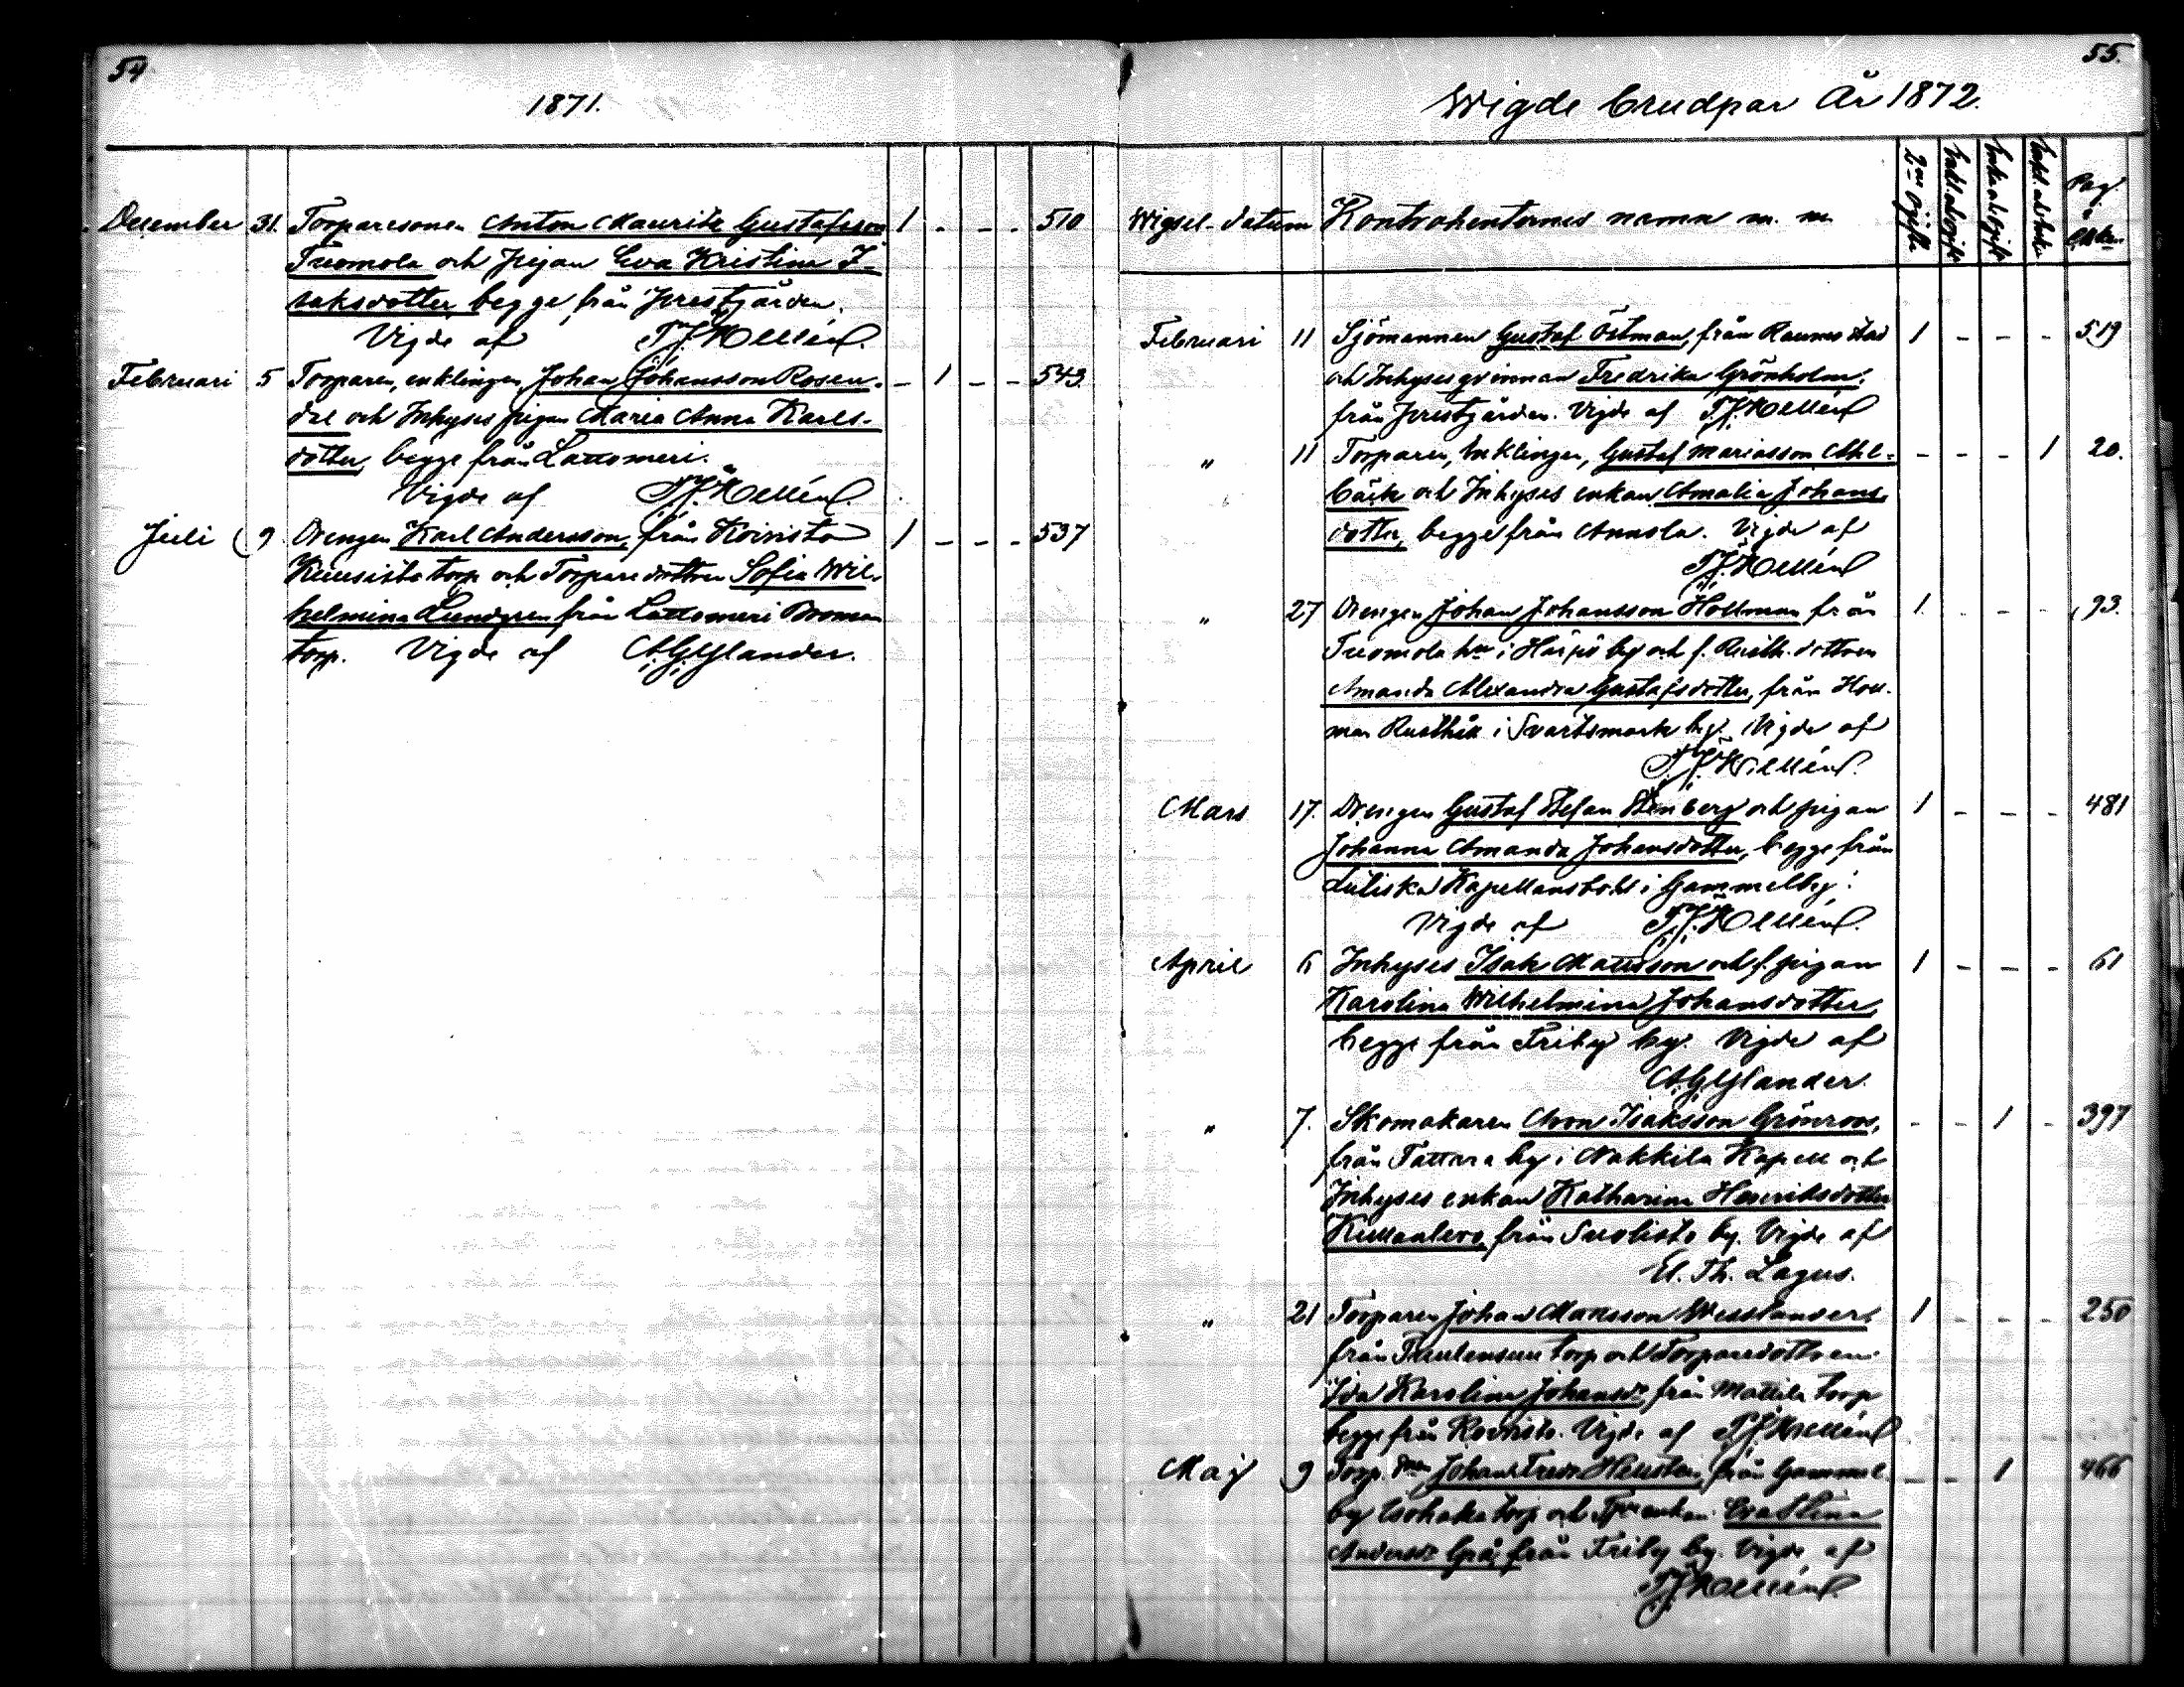 54
1871.
December 31. Torparesonen Anton Mauritz Gustafsson 1 - - - 510
Tuomola och pigan Eva Kristina I-
saksdotter, begge från Prestgården.
Vigde af
Februari 5 Torparen, enklingen Johan Johansson Rosen- - 1 - - 543
dal och Inhyses pigan Maria Anna Karls-
dotter, begge från Lattomeri.
Vigde af
Juli 9 Drengen Karl Andersson, från Koivisto 1 - - - 537
torp och Torparedottren Sofia Wil-
helmina Lundgren från Lattomeri Broman
torp. Vigde af A.G. Ylander.
55.
Wigde brudpar År 1872.
Wigsel-datum Kontrahenternes namn m. m. 2ne ogifta Pag.
Februari 11 Sjömannen Gustaf Östman, från Raumo stad 1 - - - 519
och Inhyses qvinnan Fredrika Grönholm,
från Prestgården. Vigde af
" 11 Torparen, Enklingen, Gustaf Mariasson Ahl- - - - 1 20.
bäck och Inhyses enkan Amalia Johans
dotter, begge från Annola. Vigde af
" 27 Drengen Johan Johansson Hollman från 1 - - - 93.
Tuomola hn i Härpö by och f. Rusth. dottren
Amanda Alexandra Gustafsdotter, från
Rusthåll i Svartsmark by. Vigde af
Mars 17. Drengen Gustaf Stefan Stenberg och pigan 1 - - - 481
Johanna Amanda Johansdotter, begge från
Kapellansbohl i Gammelby.
Vigde af
April 6 Inhyses Isak Mattsson och f. pigan 1 - - - 61
Karolina Wilhelmina Johansdotter,
begge från Friby by. Vigde af
A.G. Ylander.
" 7. Skomakaren Aron Isaksson Grönroos, - - 1 - 397
från Tattara by i Nakkila Kapell och
Inhyses enkan Katharina Henriksdotter
från Suolisto by. Vigde af
El. Th. Lagus.
" 21 Torparen Johan Mattsson Wesslander 1 - - - 250
från torp och Torparedottren
Ida Karolina Johansdr från Mattila torp
begge från Koivisto. Vigde af
Maj 9 Torp. Johan Fredr. från Gammel- - - 1 466
by torp och enkan Eva Stina
Andersdr Grå, från Friby by. Vigde af